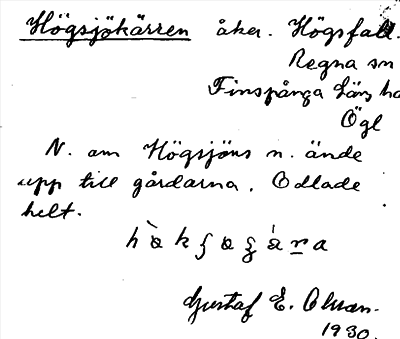 Högsjökärren åker. Högsfall.
Regna sn
Finspånga läns hd
Ögl
N. om Högsjöns n. ände
upp till gårdarna. Odlade
helt.
Gustaf E. Olsson.
1930.